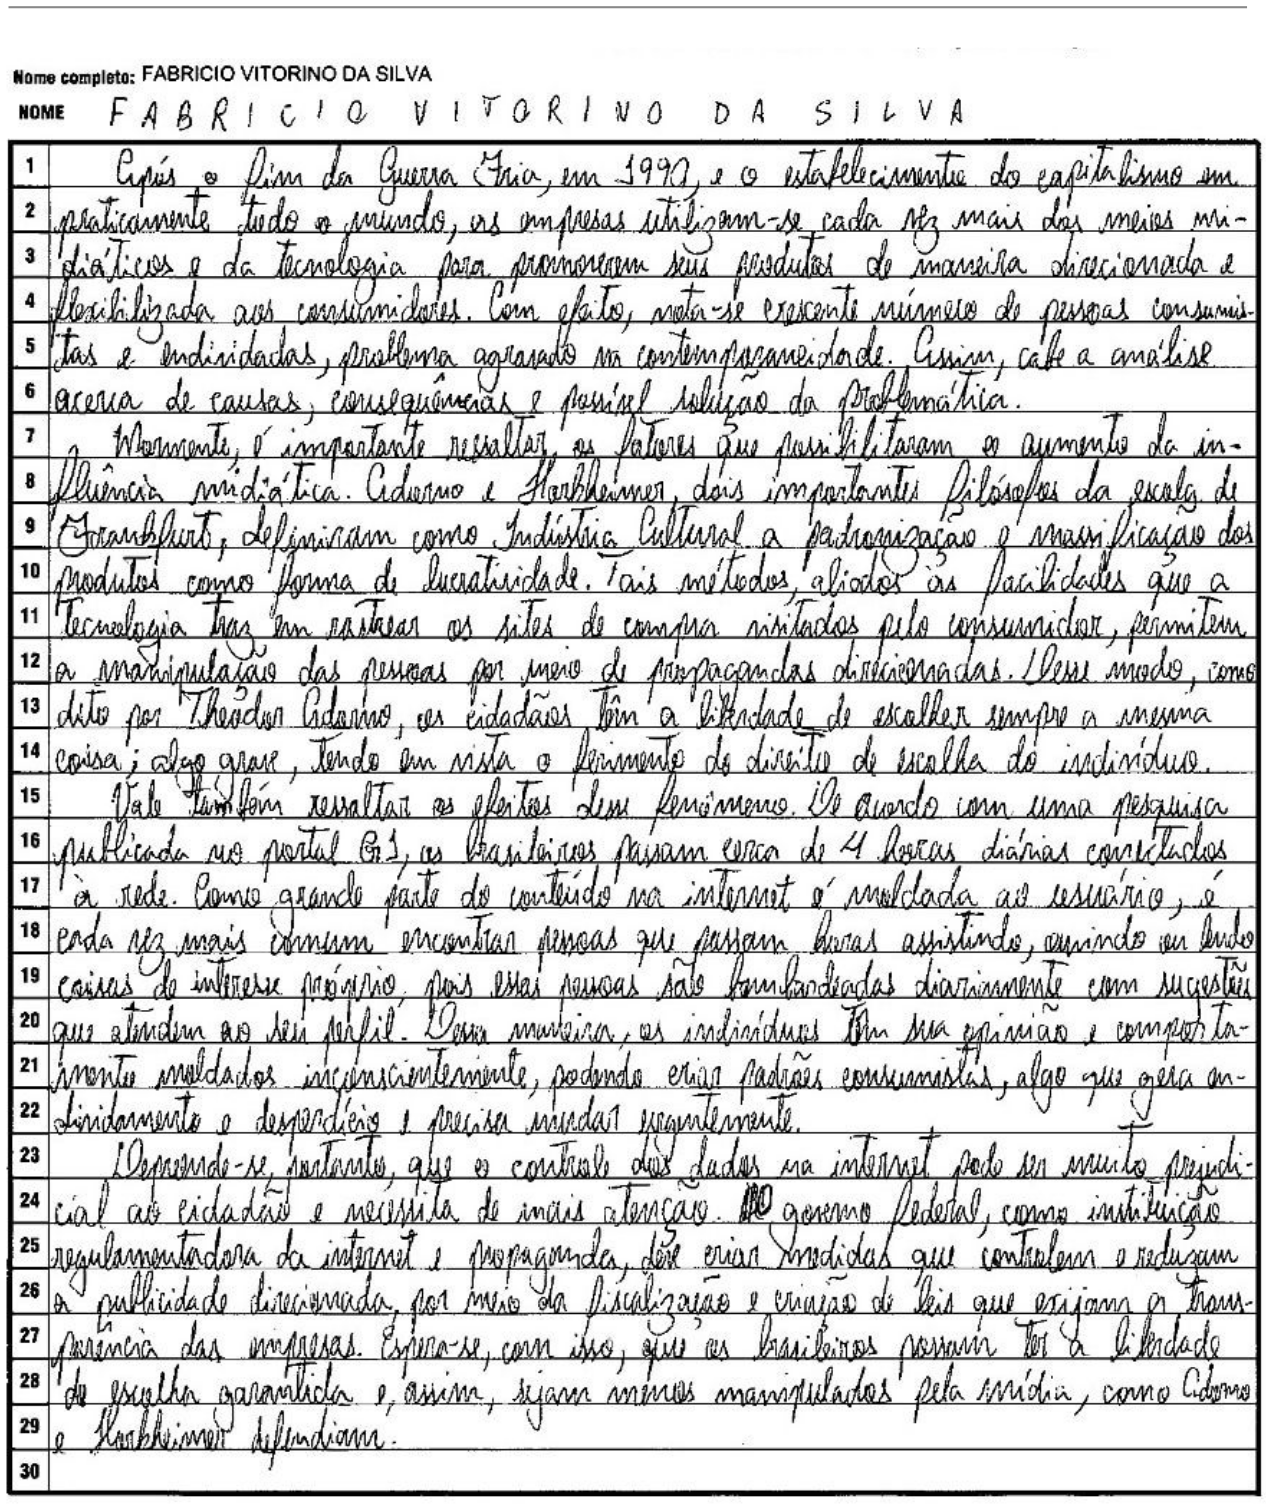 Nome completo: FABRICIO VITORINO DA SILVA
NOME FABRICIO VITORINO DA SILVA
1 Após o fim da Guerra Fria, em 1990, e o estabelecimento do capitalismo em
2 praticamente todo o mundo, as empresas utilizam-se cada vez mais dos meios mi-
3 diáticos e da tecnologia para promoverem seus produtos de maneira direcionada e
4 flexibilizada aos consumidores. Com efeito, nota-se crescente número de pessoas consumis-
5 tas e endividadas, problema agravado na contemporaneidade. Assim, cabe a análise
6 acerca de causas, consequências e possível solução da problemática.
7 Mormente, é importante ressaltar os fatores que possibilitaram o aumento da in-
8 fluência midiática. Adorno e Horkheimer, dois importantes filósofos da escola de
9 Frankfurt, definiram como Indústria Cultural a padronização e massificação dos
10 produtos como forma de lucratividade. Tais métodos, aliados às facilidades que a
11 tecnologia traz em rastrear os sites de compra visitados pelo consumidor, permitem
12 a manipulação das pessoas por meio de propagandas direcionadas. Desse modo, como
13 dito por Theodor Adorno, os cidadãos têm a liberdade de escolher sempre a mesma
14 coisa; algo grave, tendo em vista o ferimento do direito de escolha do indivíduo.
15 Vale também ressaltar os efeitos desse fenômeno. De acordo com uma pesquisa
16 publicada no portal G1, os brasileiros passam cerca de 4 horas diárias conectados
17 à rede. Como grande parte do conteúdo na internet é moldada ao usuário, é
18 cada vez mais comum encontrar pessoas que passam horas assistindo, ouvindo ou lendo
19 coisas de interesse próprio, pois essas pessoas são bombardeadas diariamente com sugestões
20 que atendem ao seu perfil. Dessa maneira, os indivíduos têm sua opinião e comporta-
21 mento moldados inconscientemente, podendo criar padrões consumistas, algo que gera en-
22 dividamento e desperdício e precisa mudar urgentemente.
23 Depreende-se, portanto, que o controle dos dados na internet pode ser muito prejudi-
24 cial ao cidadão e necessita de mais atenção. O governo federal, como instituição
25 regulamentadora da internet e propaganda, deve criar medidas que controlem e reduzam
26 a publicidade direcionada, por meio da fiscalização e criação de leis que exijam a trans-
27 parência das empresas. Espera-se, com isso, que os brasileiros possam ter a liberdade
28 de escolha garantida e, assim, sejam menos manipulados pela mídia, como Adorno
29 e Horkheimer defendiam.
30